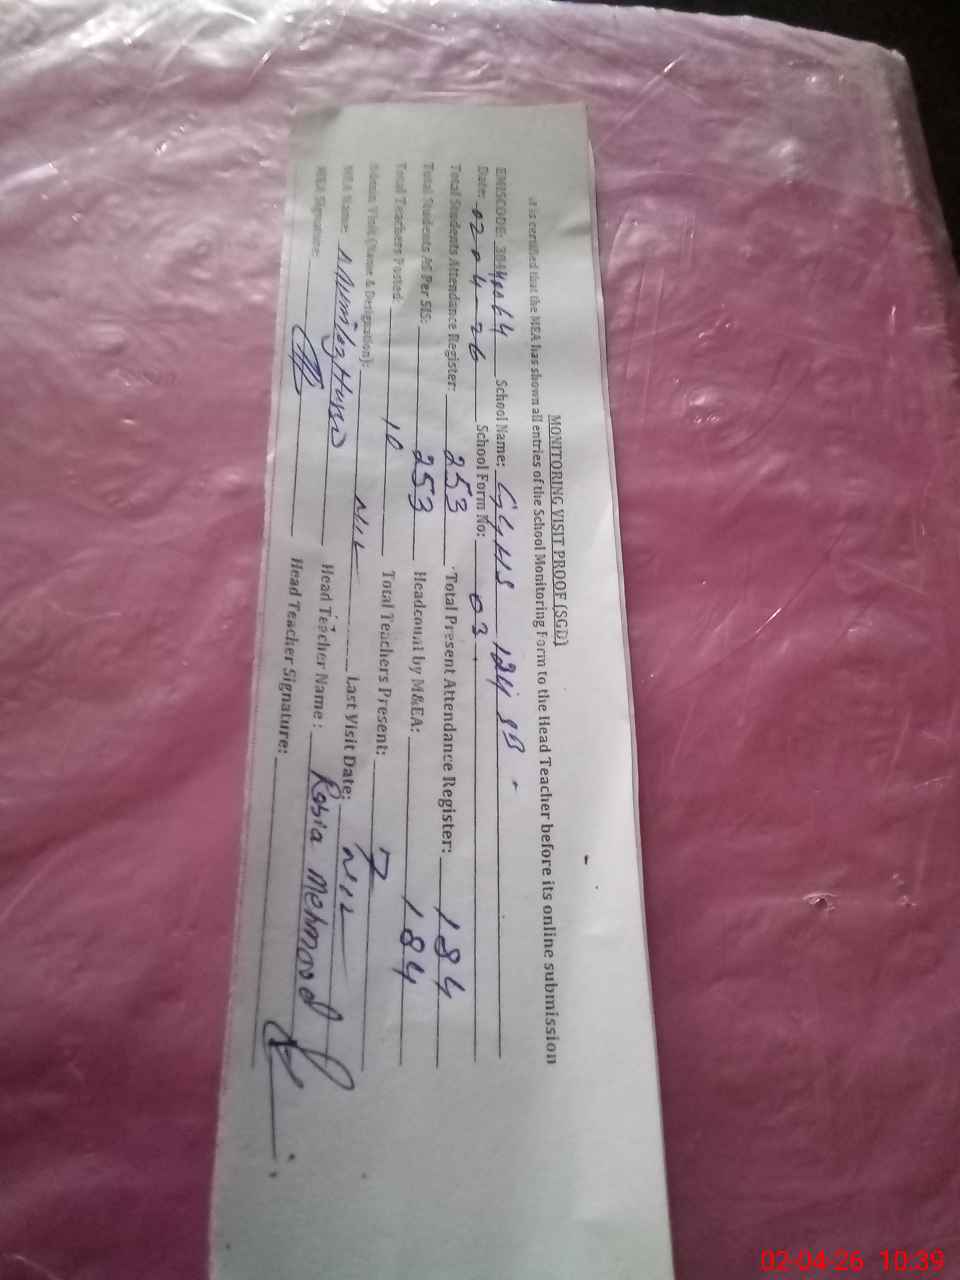 MONITORING VISIT PROOF (SGD)
It is certified that the MEA has shown all entries of the School Monitoring Form to the Head Teacher before its online submission
EMISCODE: School Name: GGHS 124 SB
Date: 02-4-26 School Form No: 03
Total Students Attendance Register: 253 Total Present Attendance Register: 184
Total Students As Per SIS: 253 Headcount by M&EA: 184
Total Teachers Posted: 10 Total Teachers Present: 7
Admin Visit (Name & Designation): NIL Last Visit Date: NIL
MEA Name: Head Teacher Name: Robia Mehmood
MEA Signature: Head Teacher Signature:
02-04-26 10:39